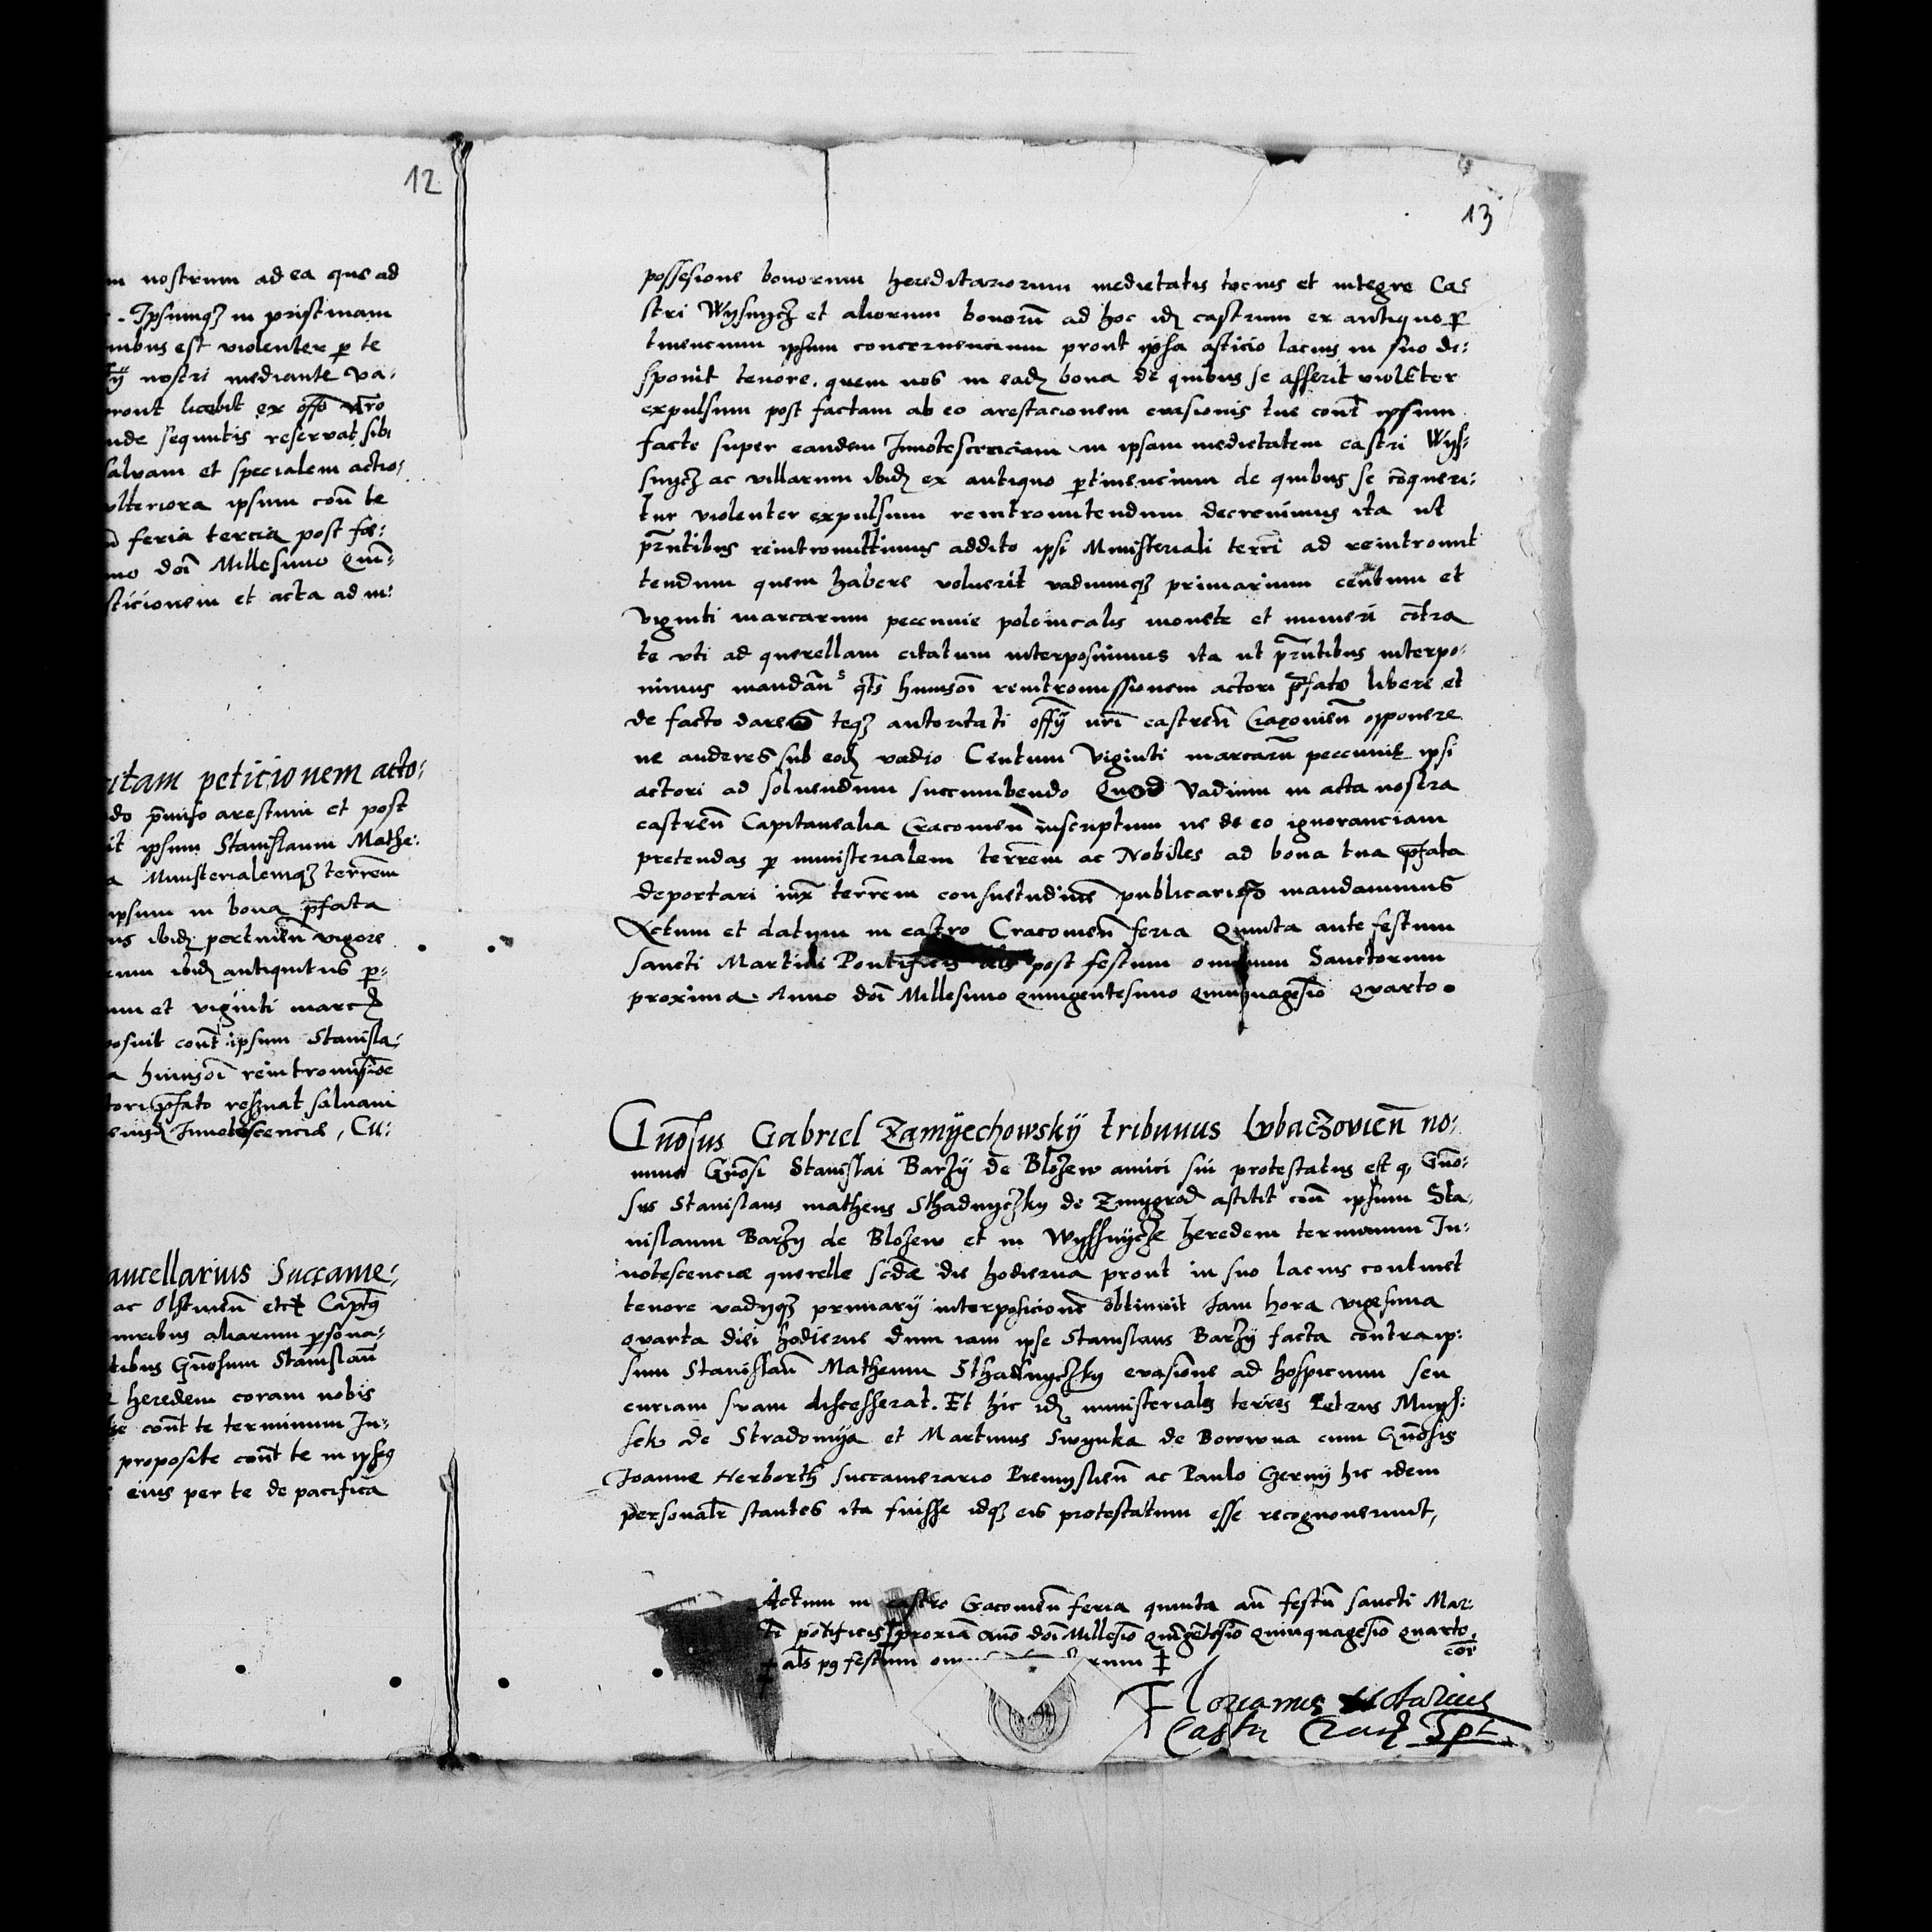 12
m nostrum ad ea que ad
. Ipsumqz in pristinam
nibus est violenter p te
ÿ nostri mediante va:
ront licebit ex offo vro
nde sequutis reservat sibi
salvam et specialem actio:
ulteriora ipsum con te
feria tercia post fes:
mo doi Millesimo Quin:
sticionem et acta ad in:
itam peticionem acto:
do pmisso arestum et post
it ipsum Stanislaum Mathe:
a Ministerialemqz terrem
ipsum in bona pfata
us ibidz pertinen vigore
num ibidz antiquitus p:
um et viginti marcz
posuit cont ipsum Stanisla:
a huiusoi reintromissioe
tori pfato resvuat salvam
eiusdz Innotescencie, Cu:
ancellarius Succame:
ac Olstinen etct Captg
muribus aliarum psona:
tibus Gnosum Stanislau
heredem coram nobis
he cont te terminum In:
proposite cont te in ipsg
eius per te de pacifica
13
possesione bonorum hereditariorum medietatis tocius et integre Ca:
stri Wysnycz et aliorum bonoru ad hoc idz castrum ex antiquo p
tinencium ipsum concernencium prout ipsa asticio lacius in suo di:
sponit tenore. quem nos in eadz bona de quibus se asserit violeter
expulsum post factam ab eo arestacionem evasionis tue cont ipsum
facte super eandem Innotescenciam in ipsam medietatem castri Wys:
snycz ac villarum ibidz ex antiquo ptinencium de quibus se coqueri:
tur violenter expulsum reintromittendum decrevimus ita ut
pntibus reintromittimus addito ipsi Ministeriali terri ad reintromit
tendum quem habere voluerit vadiumqz primarium centum et
viginti marcarum peccunie polonicalis monete et numeri cotra
te uti ad querellam citatum interposuimus ita ut pntibus interpo:
nimus mandans qts huiusoi reintromissionem actori pfato libere et
de facto dares teqz autoritati offÿ nri castren Cracovien opponere
ne auderes sub eodz vadio Centum Viginti marcaru peccunie ipsi
actori ad solvendum succumbendo Quod Vadium in acta nostra
castren Capitanealia Cracovien inscriptum ne de eo ignoranciam
pretendas p ministerialem terrem ac Nobiles ad bona tua pfata
deportari iux terrem consuetudine publicariqz mandavimus
Actum et datum in castro Cracovien feria Quinta ante festum
Sancti Martini Pontificis als post festum omnium Sanctorum
proxima Anno doi Millesimo quingentesimo quinquagesio quarto.
Gnosus Gabriel Zamÿechowskÿ tribunus Lvbaczovien no:
mine Gnosi Stanislai Barzÿ de Blozew amici sui protestatus est q, Gno:
sus Stanislaus matheus Sthadnyczky de Zmygrod astitit con ipsum Sta:
nislaum Barzy de Blozew et in Wyssnycze heredem terminum In:
notescencie querelle scdæ die hodierna prout in suo lacius continet
tenore vadÿqz primarÿ interposicione obtinuit Iam hora vigesima
quarta diei hodierne dum iam ipse Stanislaus Barzÿ facta contra ip:
sum Stanislau Matheum Sthadnyczky evasione ad hospicium seu
curiam suam discesserat. Et hic idz ministerialis terris Petrus Mnys:
sek de Stradomÿa et Martinus Swynka de Borowna cum Gnosis
Joanne Herborth succamerario Premyslien ac Paulo Czerny hic idem
personalr stantes ita fuisse idqz eis protestatum esse recognoverunt,
Actum in castro Cracovien feria quinta an festu Sancti Mar:
ti potificis proxia ano doi Millesio quigetesio quinquagesio quarto,
‡ als pg festum om rum ‡
cor
Florianus Notarius
Castri Crac Spt